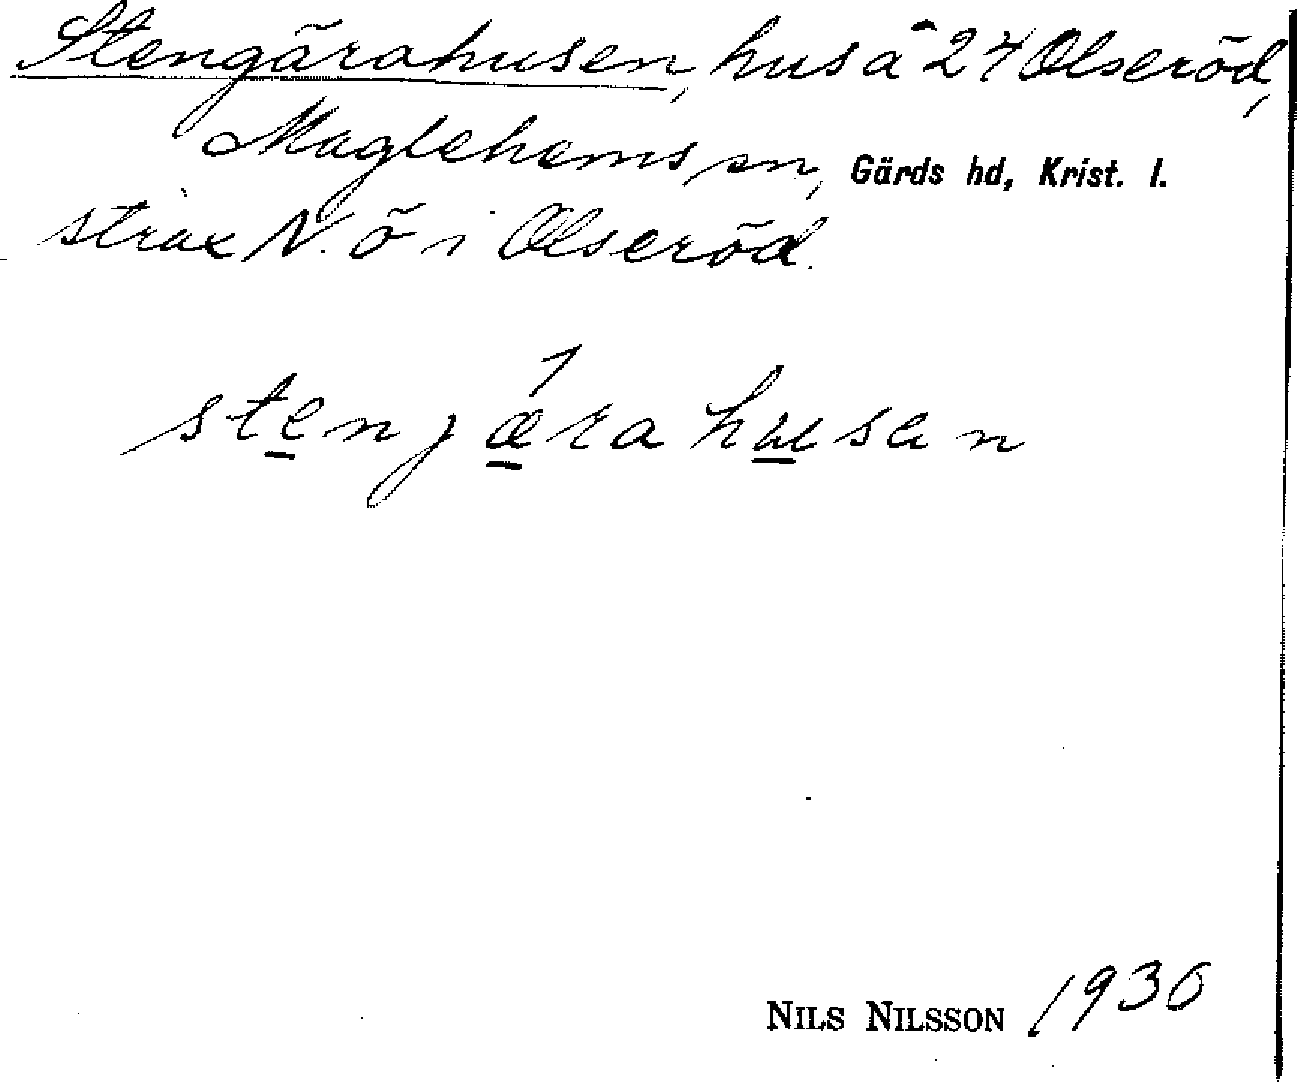 Stengärahusen, hus å 24 Olseröd,
Maglehems sn, Gärds hd, Krist. l.
strax N. ö i Olseröd.
stenjǽ̱rahu̱sen
NILS NILSSON 1930